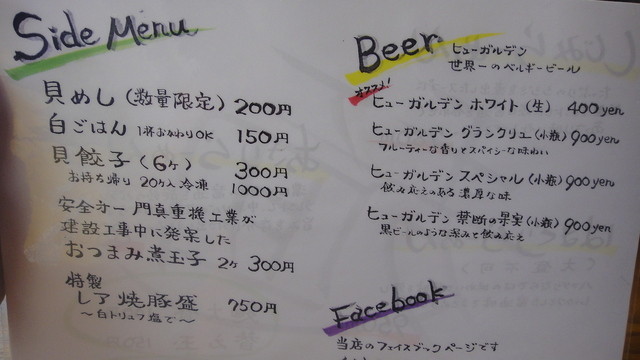 Side Menu
貝めし(数量限定) 200円
白ごはん 1杯おかわりOK 150円
貝餃子(6ヶ) 300円
お持ち帰り 20ヶ入 冷凍 1000円
安全第一 門真重機工業が
建設工事中に発案した
おつまみ煮玉子 2ヶ 300円
特製
レア焼豚盛 750円
〜白トリュフ塩で〜
Beer ヒューガルデン
世界一のベルギービール
オススメ!
ヒューガルデン ホワイト(生) 400yen
ヒューガルデン グランクリュ(小瓶) 900yen
フルーティーな香りとスパイシーな味わい
ヒューガルデン スペシャル(小瓶) 900yen
飲み応えのある濃厚な味
ヒューガルデン 禁断の果実(小瓶) 900yen
黒ビールのような深みと飲み応え
Facebook
当店のフェイスブックページです